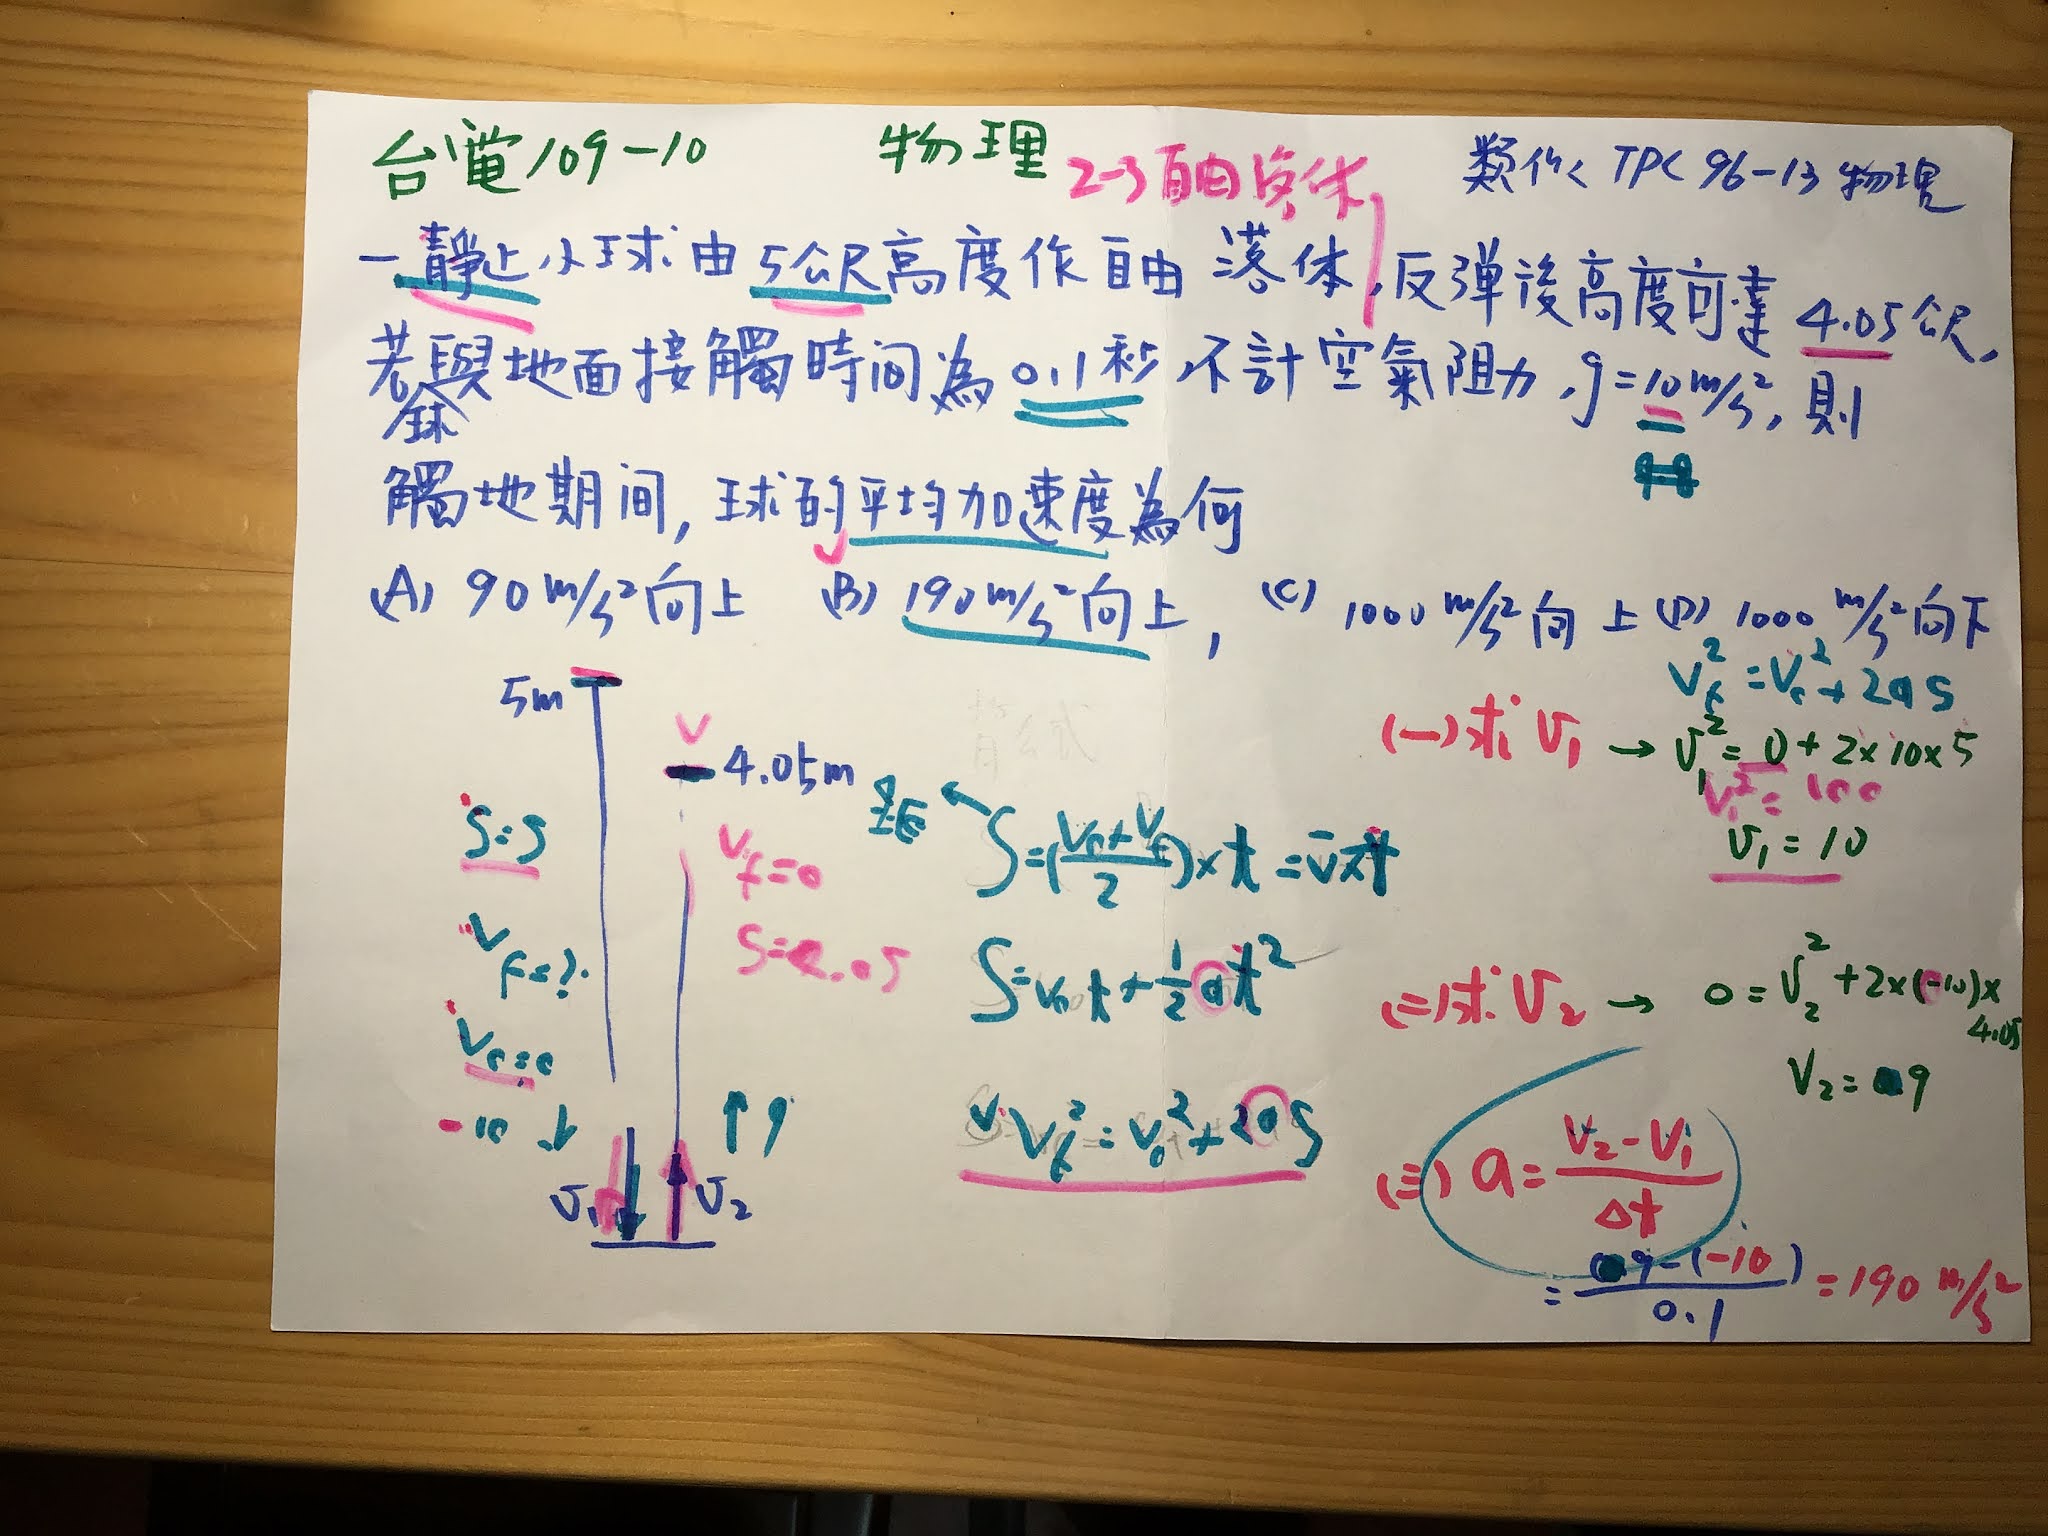 台電109-10 物理 2-3自由落体 類似 TPC 96-13 物理
一靜止小球由5公尺高度作自由落体,反弹後高度可達4.05公尺,
若球與地面接觸時间為0.1秒,不計空氣阻力,g=10m/s²,則
觸地期间,球的平均加速度為何
(A) 90m/s²向上 (B) 190m/s²向上, (C) 1000m/s²向上 (D) 1000m/s²向下
5m
V
4.05m
S=5
Vf=?
V0=0
-10 ↓
Vf=0
↑9
V1
V2
S=(V0+Vf/2)×t=v̄×t
S=V0t+1/2at²
Vf²=V0²+2aS
Vf²=V0²+2aS
(一)求V1→V1²=0+2×10×5
V1²=100
V1=10
(二)求V2→0=V2²+2×(-10)×4.05
V2=9
(三) a=V2-V1/Δt
=9-(-10)/0.1=190m/s²